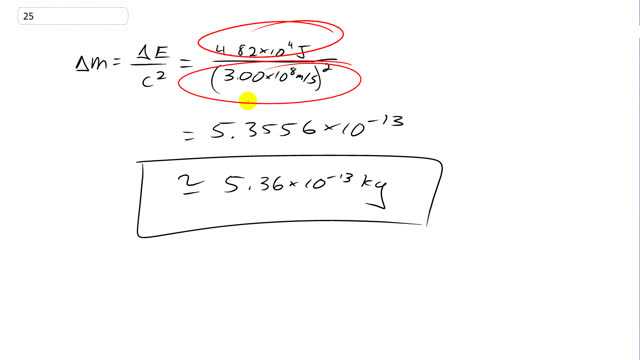 25
Δm = ΔE/c² = 4.82×10⁴J/(3.00×10⁸m/s)²
= 5.3556×10⁻¹³
≃ 5.36×10⁻¹³ kg